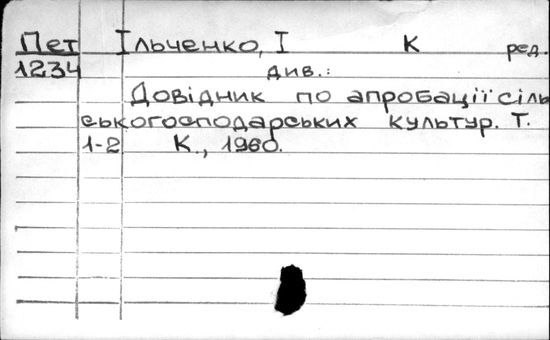 Пет Ільченко, І К ред.
1234 див.:
Довідник по апробації сіль
ськогосподарських культур. Т.
1-2 К., 1960.